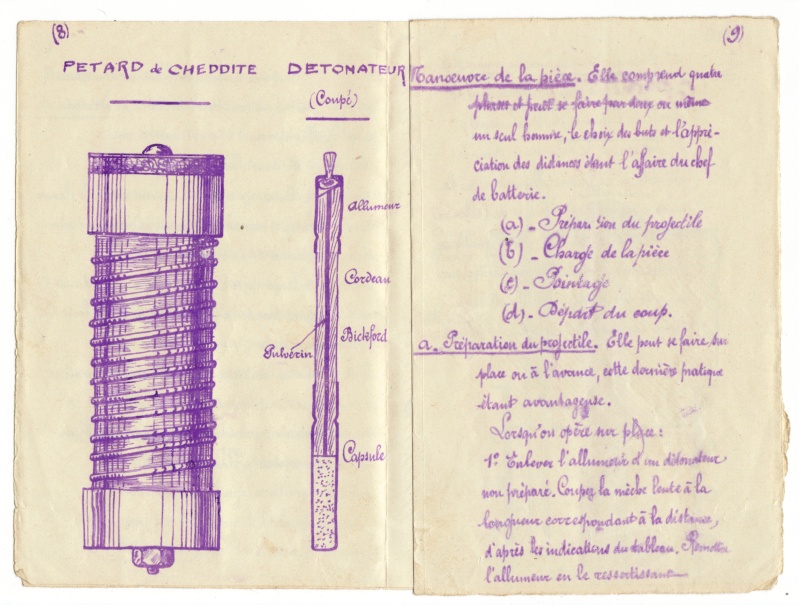 (8)
PETARD de CHEDDITE
DETONATEUR
(Coupé)
Allumeur
Cordeau
Bickford
Pulvérin
Capsule
(9)
Manœuvre de la pièce. Elle comprend quatre
phases et peut se faire par deux ou même
un seul homme, le choix des buts et l'appré-
ciation des distances étant l'affaire du chef
de batterie.
(a) - Préparation du projectile
(b) - Charge de la pièce
(c) - Pointage
(d) - Départ du coup.
a. Préparation du projectile. Elle peut se faire, sur
place ou à l'avance, cette dernière pratique
étant avantageuse.
Lorsqu'on opère sur place :
1º Enlever l'allumeur d'un détonateur
non préparé. Couper la mèche lente à la
longueur correspondant à la distance,
d'après les indications du tableau. Remettre
l'allumeur en le ressertissant